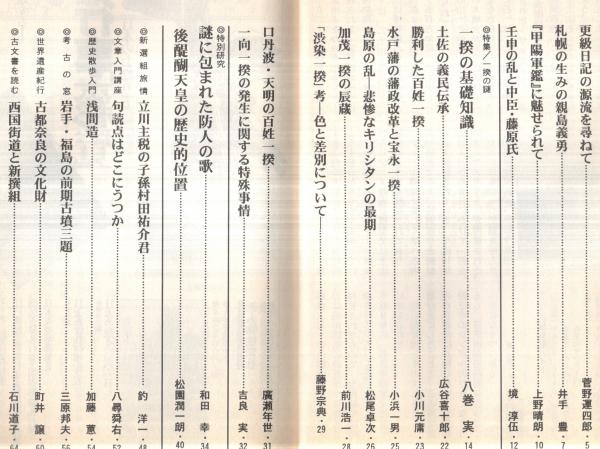 更級日記の源流を尋ねて……菅野運四郎・5
札幌の生みの親島義勇……井手　豊・7
『甲陽軍鑑』に魅せられて……上野晴朗・10
壬申の乱と中臣・藤原氏……境　淳伍・12
◎特集／一揆の謎
一揆の基礎知識……八巻　実・14
土佐の義民伝承……広谷喜十郎・22
勝利した百姓一揆……小川元庸・23
水戸藩の藩政改革と宝永一揆……小浜一男・25
島原の乱―悲惨なキリシタンの最期……松尾卓次・26
加茂一揆の辰蔵……前川浩一・28
「渋染一揆」考―色と差別について―……藤野宗典・29
口丹波・天明の百姓一揆……廣瀬年世・31
一向一揆の発生に関する特殊事情……吉良　実・32
◎特別研究
謎に包まれた防人の歌……和田　幸・34
後醍醐天皇の歴史的位置……松園潤一朗・40
◎新選組旅情　立川主税の子孫村田祐介君……釣　洋一・48
◎文章入門講座　句読点はどこにうつか……八尋舜右・52
◎歴史散歩入門　浅間造……加藤　蕙・54
◎考古の窓　岩手・福島の前期古墳三題……三原邦夫・56
◎世界遺産紀行　古都奈良の文化財……町井　譲・60
◎古文書を読む　西国街道と新撰組……石川道子・64